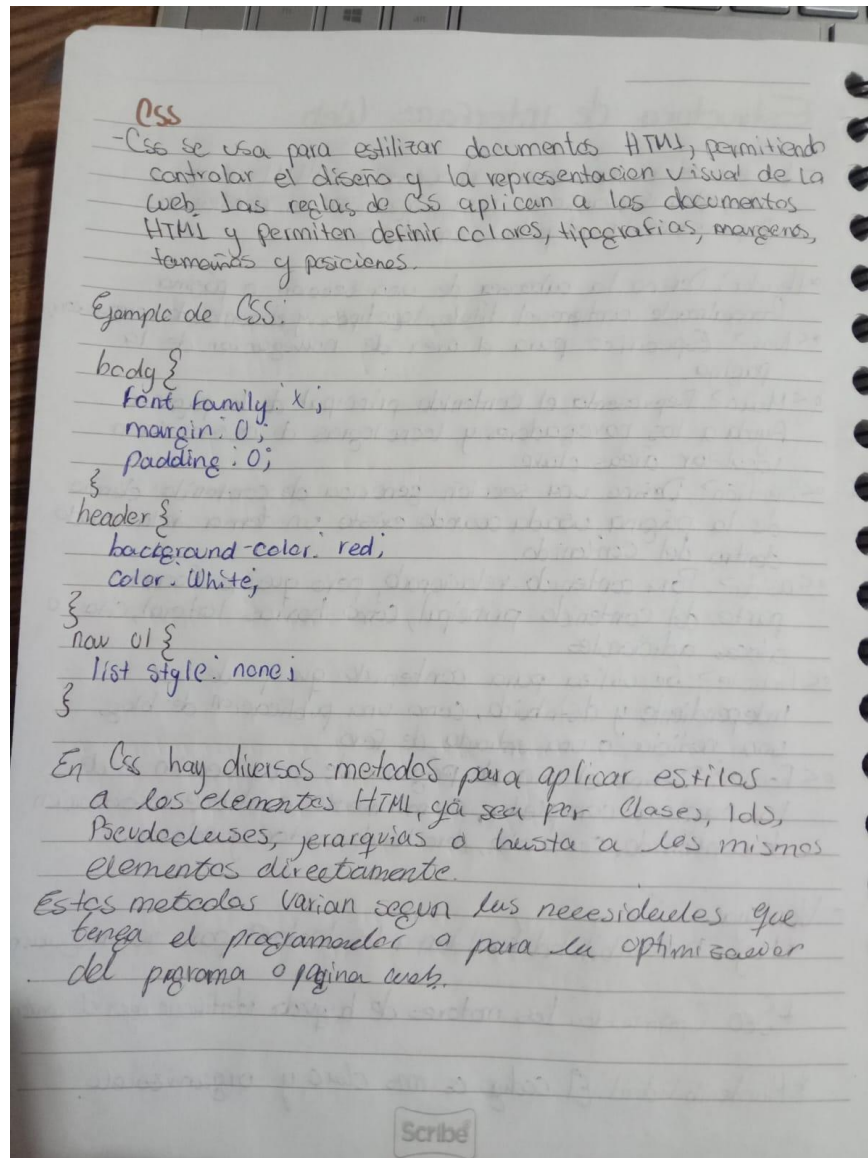 Css
-Css se usa para estilizar documentos HTML, permitiendo
controlar el diseño y la representacion visual de la
web. Las reglas de CSS aplican a los documentos
HTML y permiten definir colores, tipografias, margenes,
tamaños y posiciones.
Ejemplo de CSS:
body {
font family: x;
margin: 0;
padding: 0;
}
header {
background-color: red;
color: White;
}
nav ul {
list style: none;
}
En Css hay diversos metodos para aplicar estilos
a los elementos HTML, ya sea por Clases, Ids,
Pseudoclases, jerarquias o hasta a los mismos
elementos directamente.
Estos metodos varian segun las necesidades que
tenga el programador o para la
del programa o pagina web.
Scribe